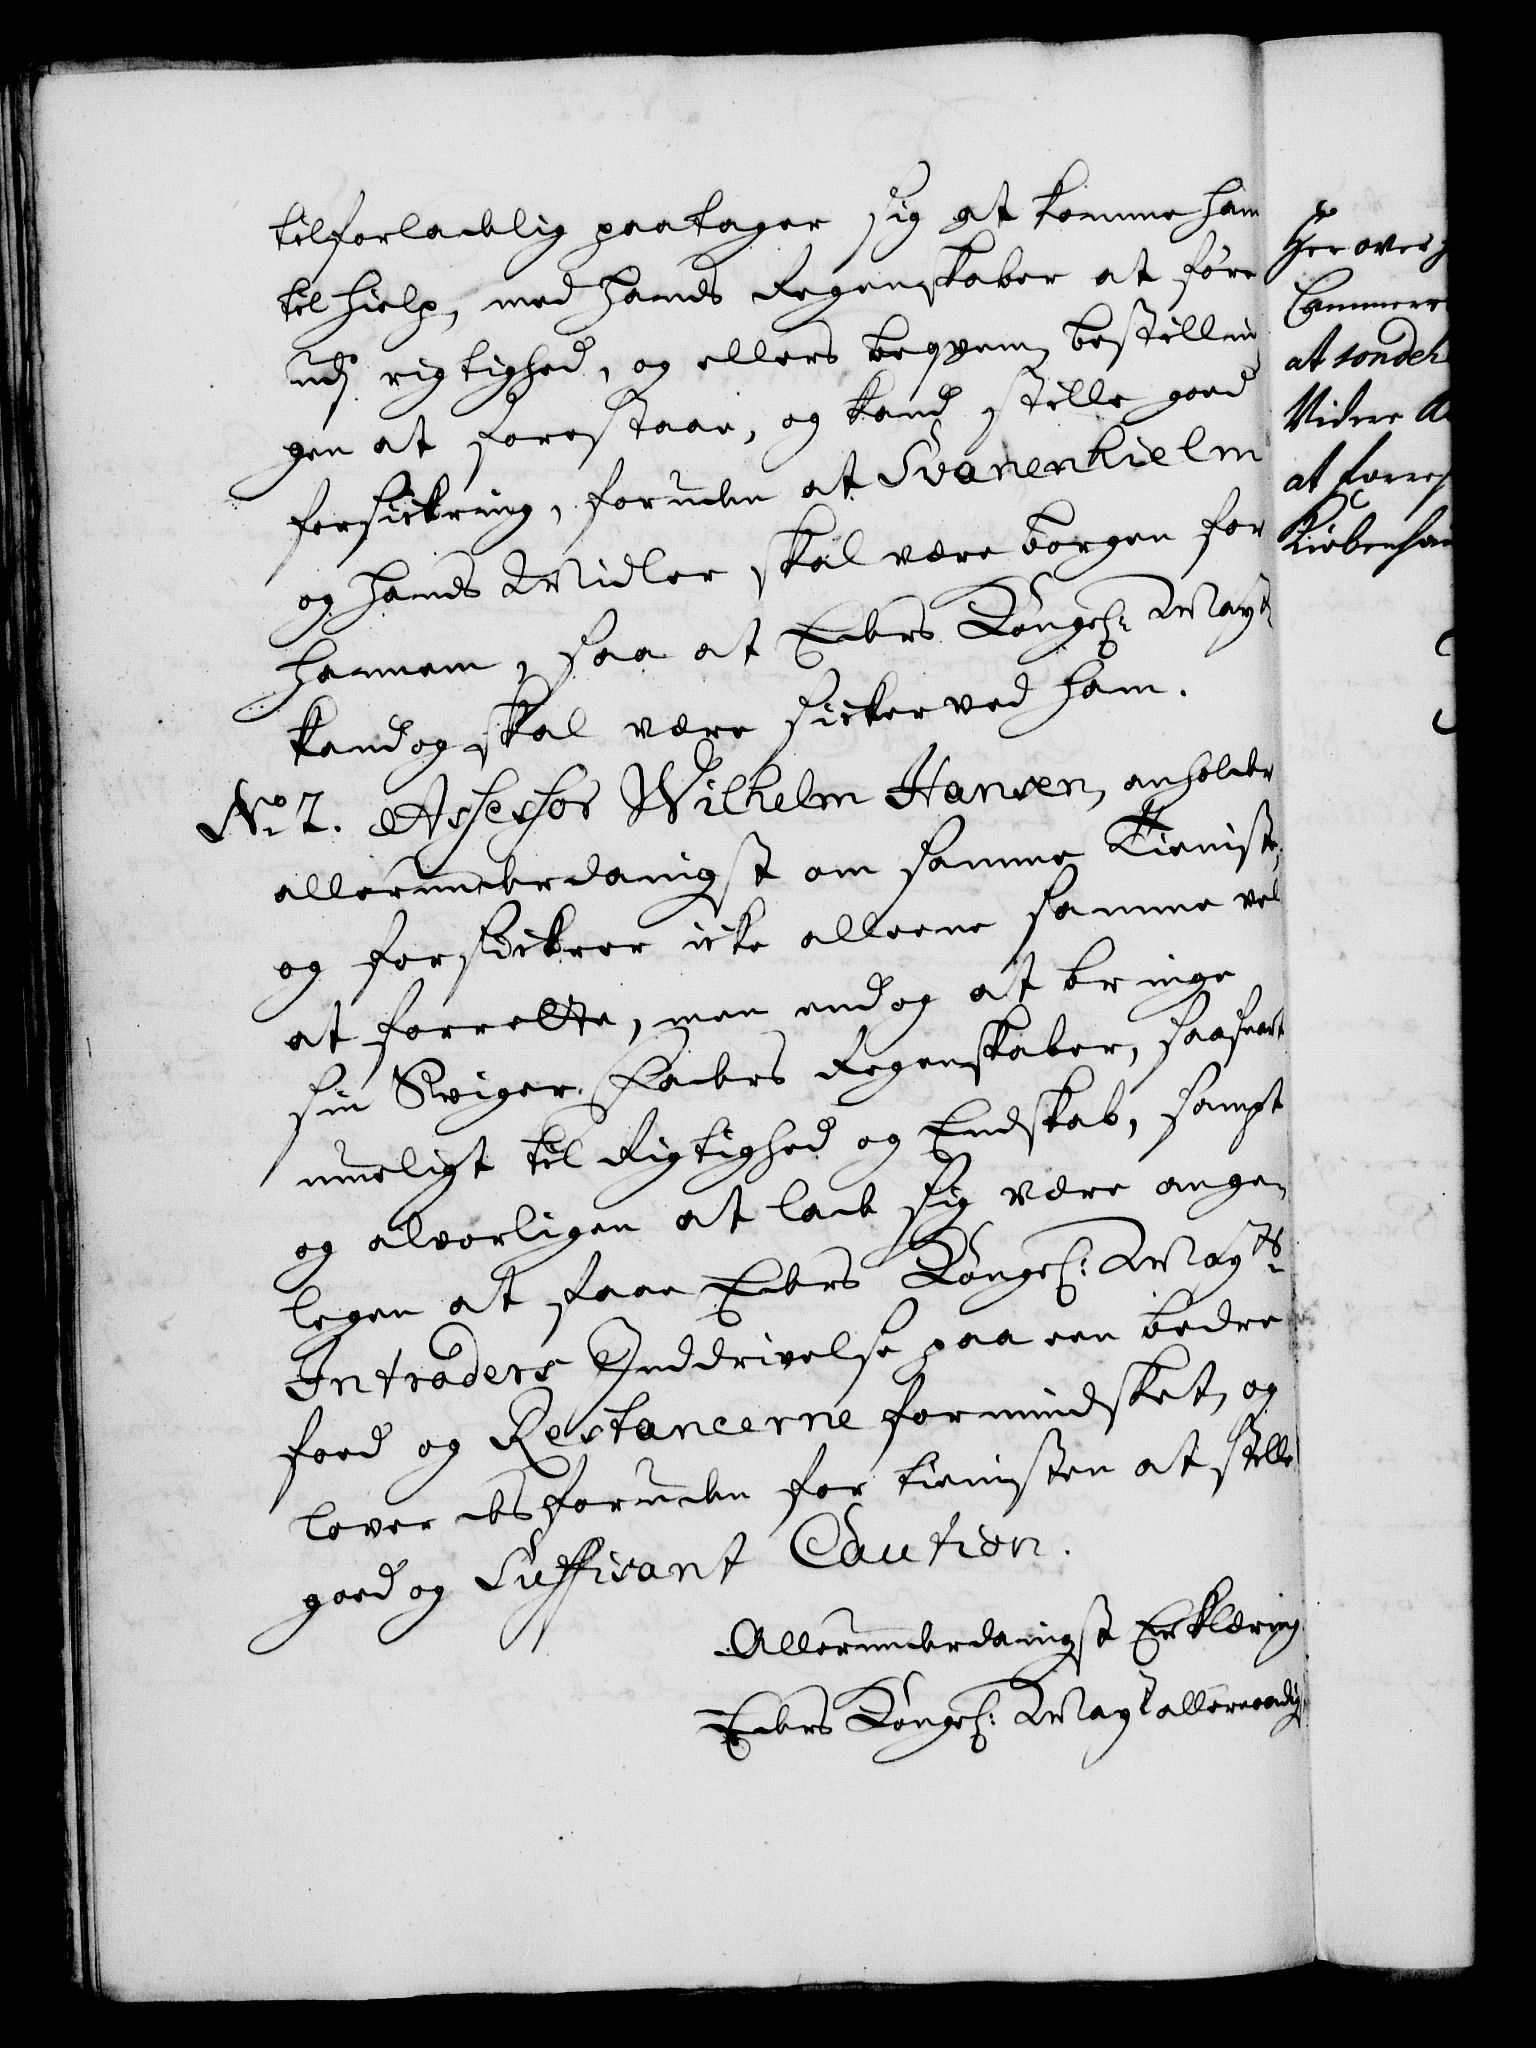 tilforladelig paatager sig at komme ham
til hielp, med hands Regenskaber at føre
udj rigtighed, og ellers beqvem bestillin
gen at forestaae, og kand stille goed
forsickring, foruden at Svanenhielm
og hands Midler skal være borgen for
hannem, saa at Eders Kongel: May:t
kand og skal være sicker ved ham.
No. 2. Assessor Wilhelm Hansen, anholder
allerunderdanigst om samme Tieniste,
og forsickrer icke alleene samme vel
at forrette, men endog at bringe
sin Sviger-Faders Regenskaber, saasnart
mueligt til Rigtighed og Endskab, sampt
og alvorligen at lade sig være angen
legen at faae Eders Kongel: May:ts
Intraders Inddrivelse paa een bedre
foed og Restancerne formindsket, og
lover desforuden for tienisten at stille
goed og Suffisant Caution.
Allerunderdanigst Erklæring
Eders Kongel: May:t allernaadig
Her over
Cammer
at sonde
Videre
at forres
Kiøbenhav